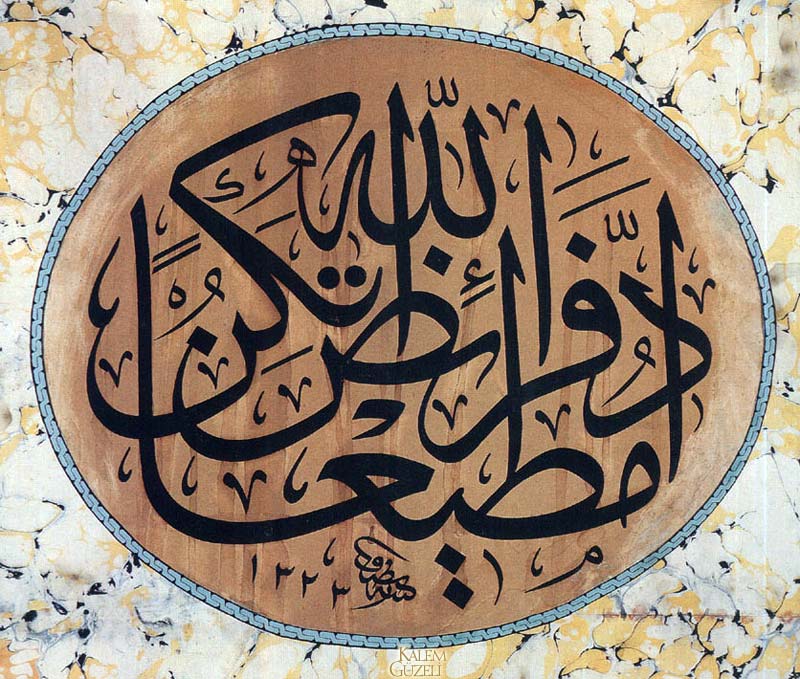 ادّ فرائض الله تكن مطيعا
١٣٢٣
KALEM
GÜZELİ